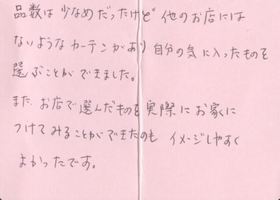 品数は少なめだったけど 他のお店には
ないようなカーテンがあり 自分の気に入ったものを
選ぶことができました。
また お店で選んだものを実際にお家に
つけてみることができたのも イメージしやすく
よかったです。